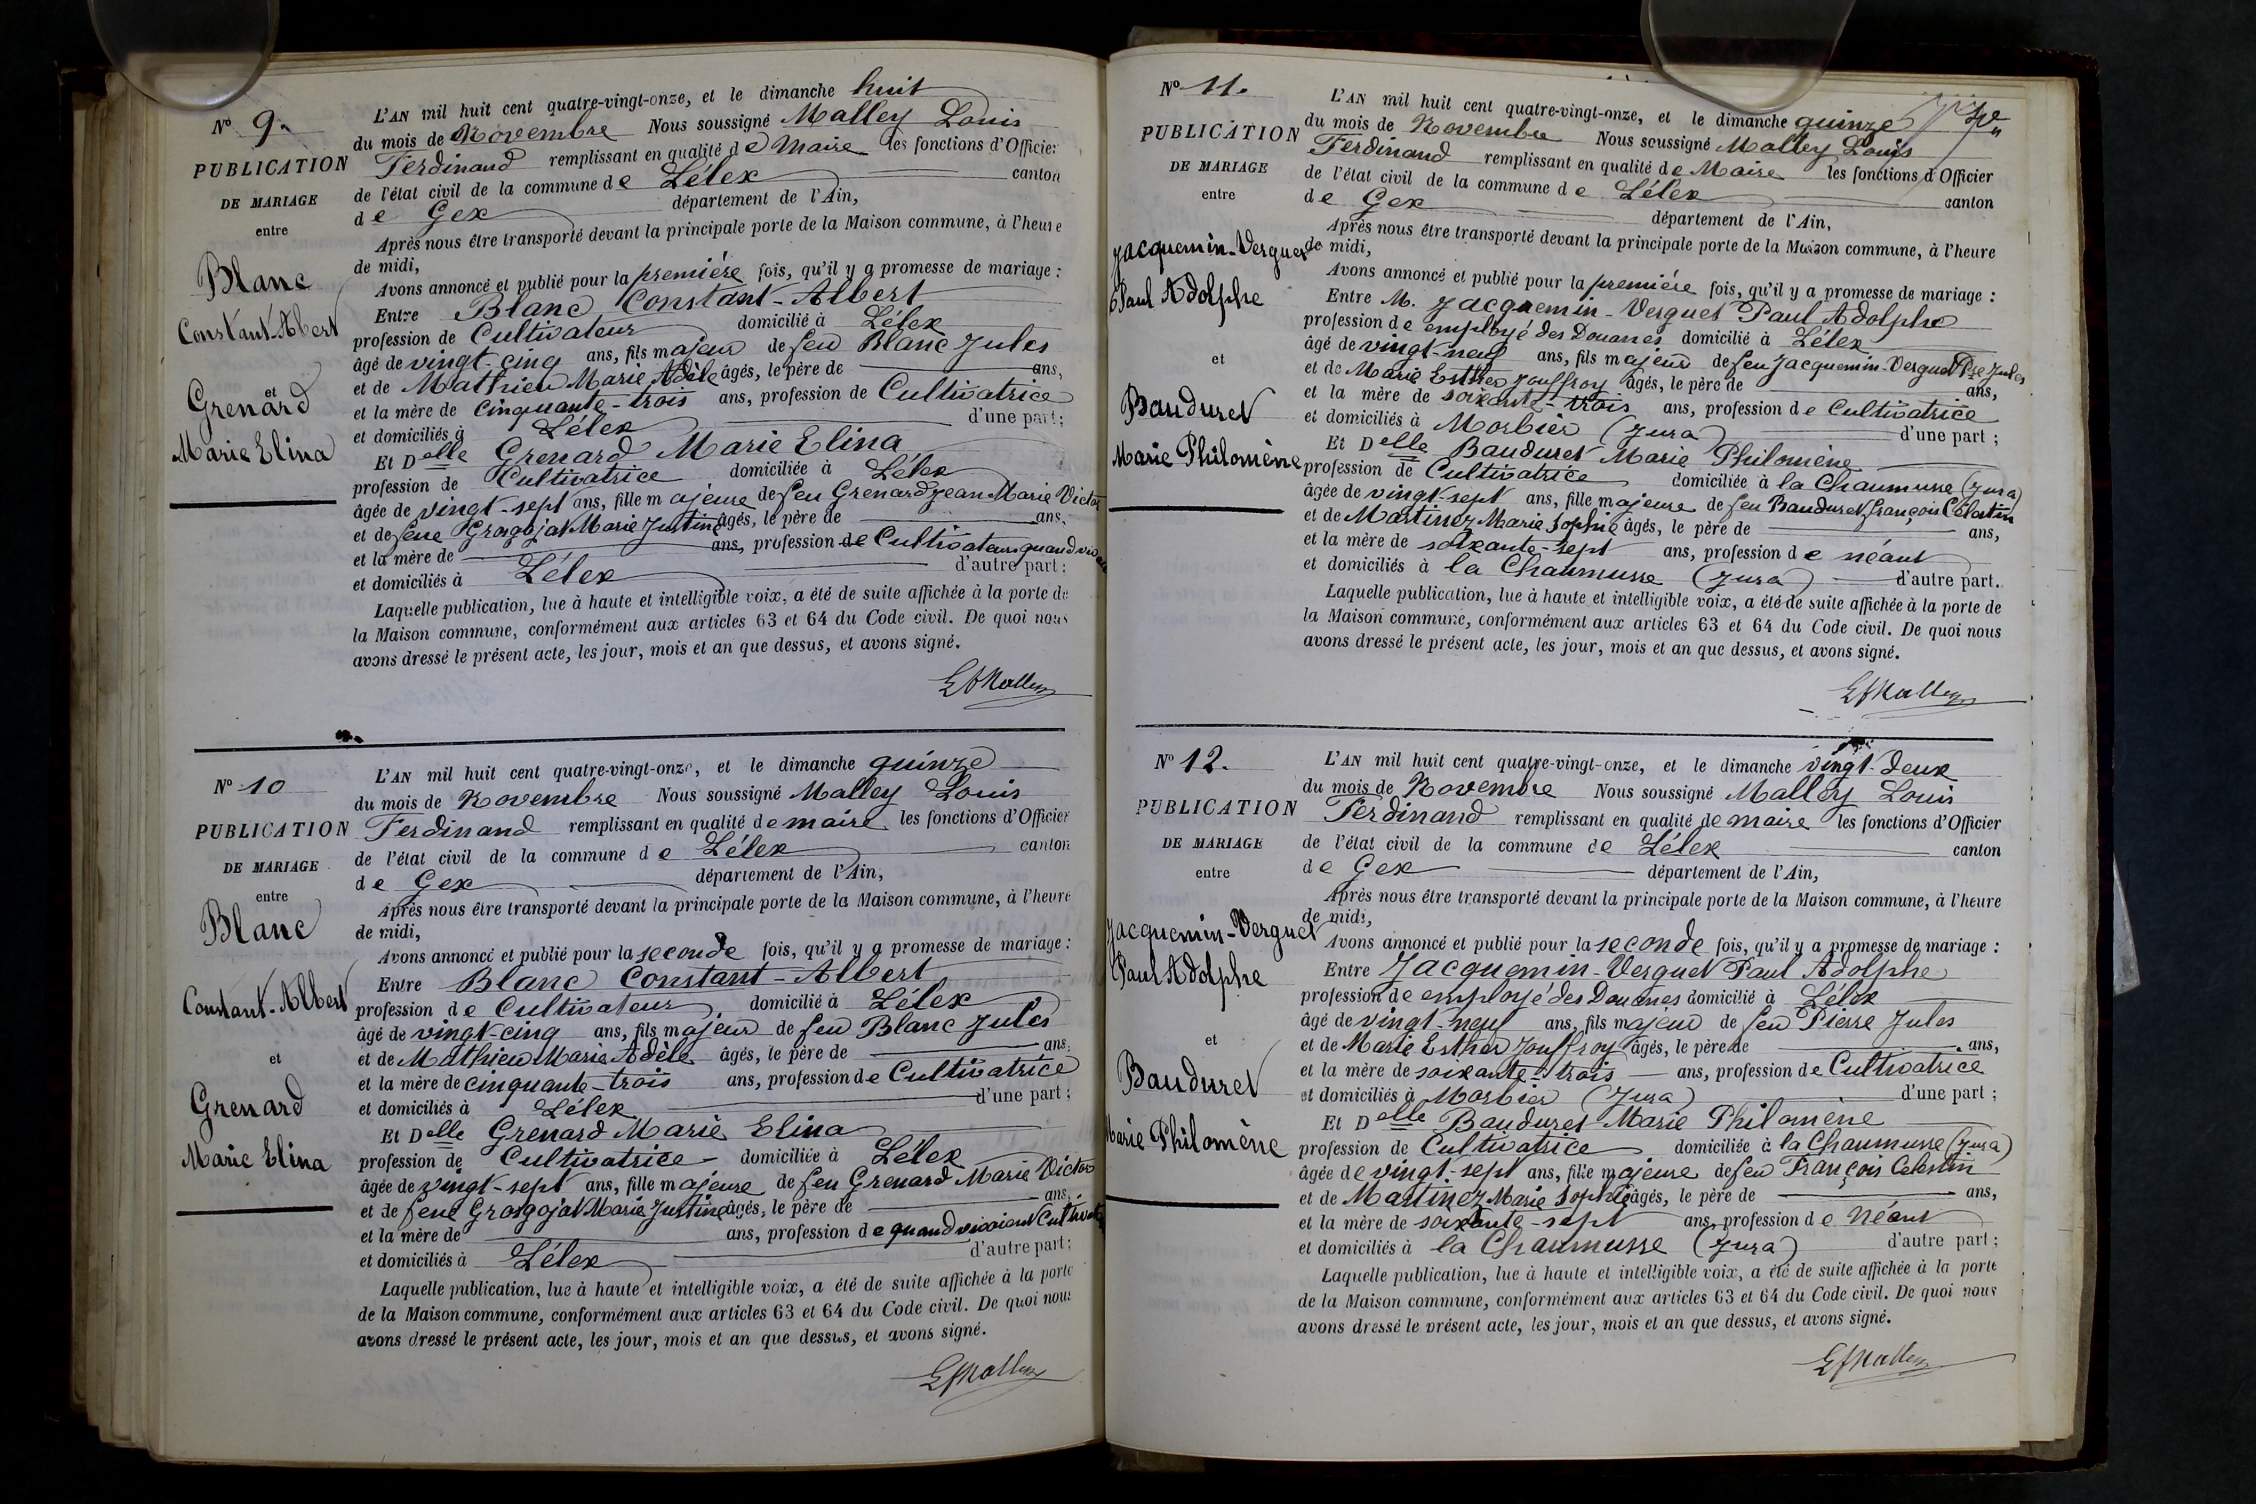 N° 9.
PUBLICATION
DE MARIAGE
entre
Blanc
Constant-Abert
et
Grenard
Marie Elina
L'AN mil huit cent quatre-vingt-onze, et le dimanche huit
du mois de Novembre Nous soussigné Malley Louis
Ferdinand remplissant en qualité de Maire les fonctions d'Officier
de l'état civil de la commune de Lélex canton
de Gex département de l'Ain,
Après nous être transporté devant la principale porte de la Maison commune, à l'heure
de midi,
Avons annoncé et publié pour la première fois, qu'il y a promesse de mariage :
Entre Blanc Constant-Albert
profession de Cultivateur domicilié à Lélex
âgé de vingt-cinq ans, fils majeur de feu Blanc Jules
et de Mathieu Marie Adèle âgés, le père de ans,
et la mère de cinquante-trois ans, profession de Cultivatrice
et domiciliés à Lélex d'une part ;
Et Delle Grenard Marie Elina
profession de Cultivatrice domiciliée à Lélex
âgée de vingt-sept ans, fille majeure de feu Grenard Jean Marie Victor
et de feue Grosgojat Marie Justine âgés, le père de ans,
et la mère de ans, profession de Cultivateurs quand
et domiciliés à Lélex d'autre part ;
Laquelle publication, lue à haute et intelligible voix, a été de suite affichée à la porte de
la Maison commune, conformément aux articles 63 et 64 du Code civil. De quoi nous
avons dressé le présent acte, les jour, mois et an que dessus, et avons signé.
LfMalley
N° 10
PUBLICATION
DE MARIAGE
entre
Blanc
Constant-Albert
et
Grenard
Marie Elina
L'AN mil huit cent quatre-vingt-onze, et le dimanche quinze
du mois de Novembre Nous soussigné Malley Louis
Ferdinand remplissant en qualité de maire les fonctions d'Officier
de l'état civil de la commune de Lélex canton
de Gex département de l'Ain,
Après nous être transporté devant la principale porte de la Maison commune, à l'heure
de midi,
Avons annoncé et publié pour la seconde fois, qu'il y a promesse de mariage :
Entre Blanc Constant-Albert
profession de Cultivateur domicilié à Lélex
âgé de vingt-cinq ans, fils majeur de feu Blanc Jules
et de Mathieu Marie Adèle âgés, le père de ans,
et la mère de cinquante-trois ans, profession de Cultivatrice
et domiciliés à Lélex d'une part ;
Et Delle Grenard Marie Elina
profession de Cultivatrice domiciliée à Lélex
âgée de vingt-sept ans, fille majeure de feu Grenard Marie Victor
et de feue Grosgojat Marie Justine âgés, le père de ans,
et la mère de ans, profession de quand vivaient
et domiciliés à Lélex d'autre part ;
Laquelle publication, lue à haute et intelligible voix, a été de suite affichée à la porte
de la Maison commune, conformément aux articles 63 et 64 du Code civil. De quoi nous
avons dressé le présent acte, les jour, mois et an que dessus, et avons signé.
LfMalley
N° 11.
PUBLICATION
DE MARIAGE
entre
Jacquemin-Verguet
Paul Adolphe
et
Bauduret
Marie Philomène
L'AN mil huit cent quatre-vingt-onze, et le dimanche quinze
du mois de Novembre Nous soussigné Malley Louis
Ferdinand remplissant en qualité de Maire les fonctions d'Officier
de l'état civil de la commune de Lélex canton
de Gex département de l'Ain,
Après nous être transporté devant la principale porte de la Maison commune, à l'heure
de midi,
Avons annoncé et publié pour la première fois, qu'il y a promesse de mariage :
Entre M. Jacquemin-Verguet Paul Adolphe
profession de employé des Douanes domicilié à Lélex
âgé de vingt-neuf ans, fils majeur de feu Jacquemin-Verguet Jules
et de Marie Esther Jouffroy âgés, le père de ans,
et la mère de soixante-trois ans, profession de Cultivatrice
et domiciliés à Morbier (Jura) d'une part ;
Et Delle Bauduret Marie Philomène
profession de Cultivatrice domiciliée à la Chaumusse (Jura)
âgée de vingt-sept ans, fille majeure de feu Bauduret François Célestin
et de Martinez Marie Sophie âgés, le père de ans,
et la mère de soixante-sept ans, profession de néant
et domiciliés à la Chaumusse (Jura) d'autre part.
Laquelle publication, lue à haute et intelligible voix, a été de suite affichée à la porte de
la Maison commune, conformément aux articles 63 et 64 du Code civil. De quoi nous
avons dressé le présent acte, les jour, mois et an que dessus, et avons signé.
LfMalley
N° 12.
PUBLICATION
DE MARIAGE
entre
Jacquemin-Verguet
Paul Adolphe
et
Bauduret
Marie Philomène
L'AN mil huit cent quatre-vingt-onze, et le dimanche vingt-deux
du mois de Novembre Nous soussigné Malley Louis
Ferdinand remplissant en qualité de maire les fonctions d'Officier
de l'état civil de la commune de Lélex canton
de Gex département de l'Ain,
Après nous être transporté devant la principale porte de la Maison commune, à l'heure
de midi,
Avons annoncé et publié pour la seconde fois, qu'il y a promesse de mariage :
Entre Jacquemin-Verguet Paul Adolphe
profession de employé des Douanes domicilié à Lélex
âgé de vingt-neuf ans, fils majeur de feu Pierre Jules
et de Marie Esther Jouffroy âgés, le père de ans,
et la mère de soixante-trois ans, profession de Cultivatrice
et domiciliés à Morbier (Jura) d'une part ;
Et Delle Bauduret Marie Philomène
profession de Cultivatrice domiciliée à la Chaumusse (Jura)
âgée de vingt-sept ans, fille majeure de feu François Celestin
et de Martinez Marie Sophie âgés, le père de ans,
et la mère de soixante-sept ans, profession de Néant
et domiciliés à la Chaumusse (Jura) d'autre part ;
Laquelle publication, lue à haute et intelligible voix, a été de suite affichée à la porte
de la Maison commune, conformément aux articles 63 et 64 du Code civil. De quoi nous
avons dressé le présent acte, les jour, mois et an que dessus, et avons signé.
LfMalley